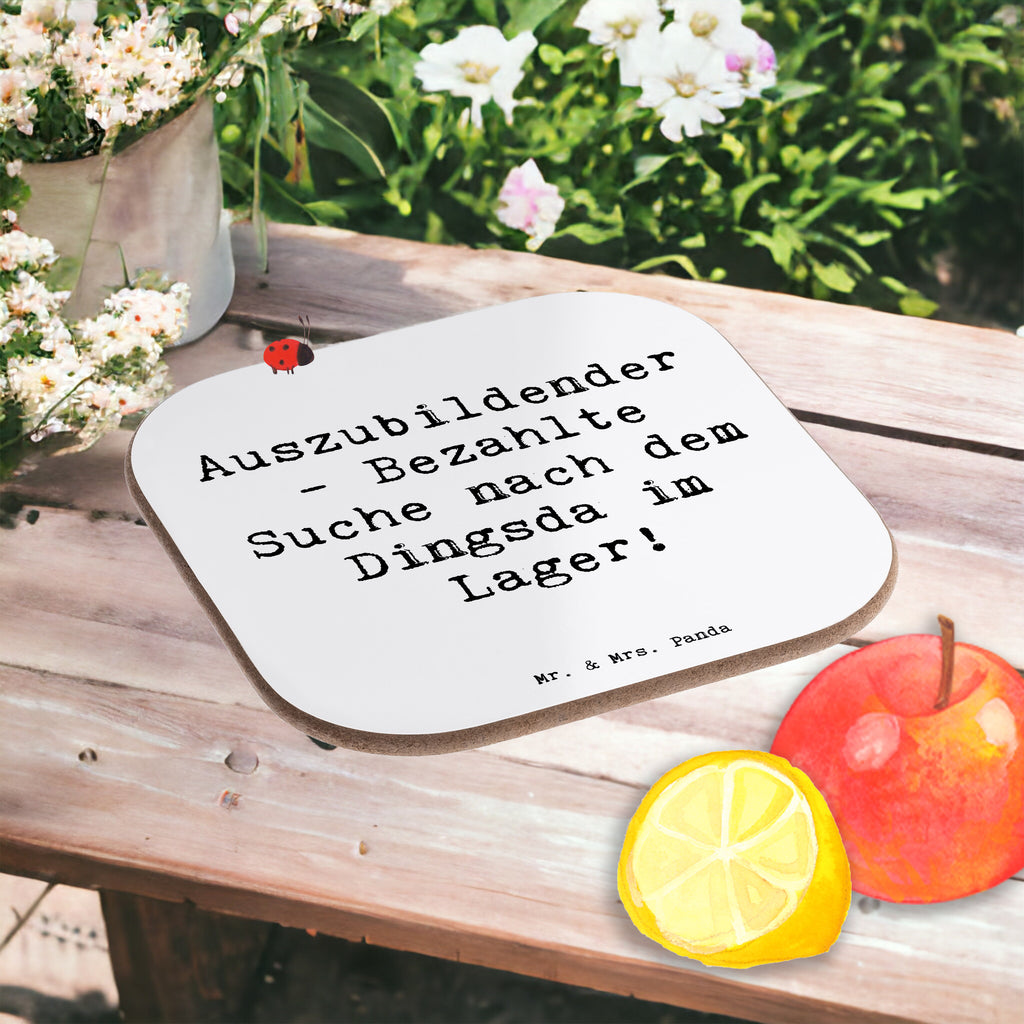 Auszubildender
- Bezahlte
Suche nach dem
Dingsda im
Lager!
Mr. & Mrs. Panda